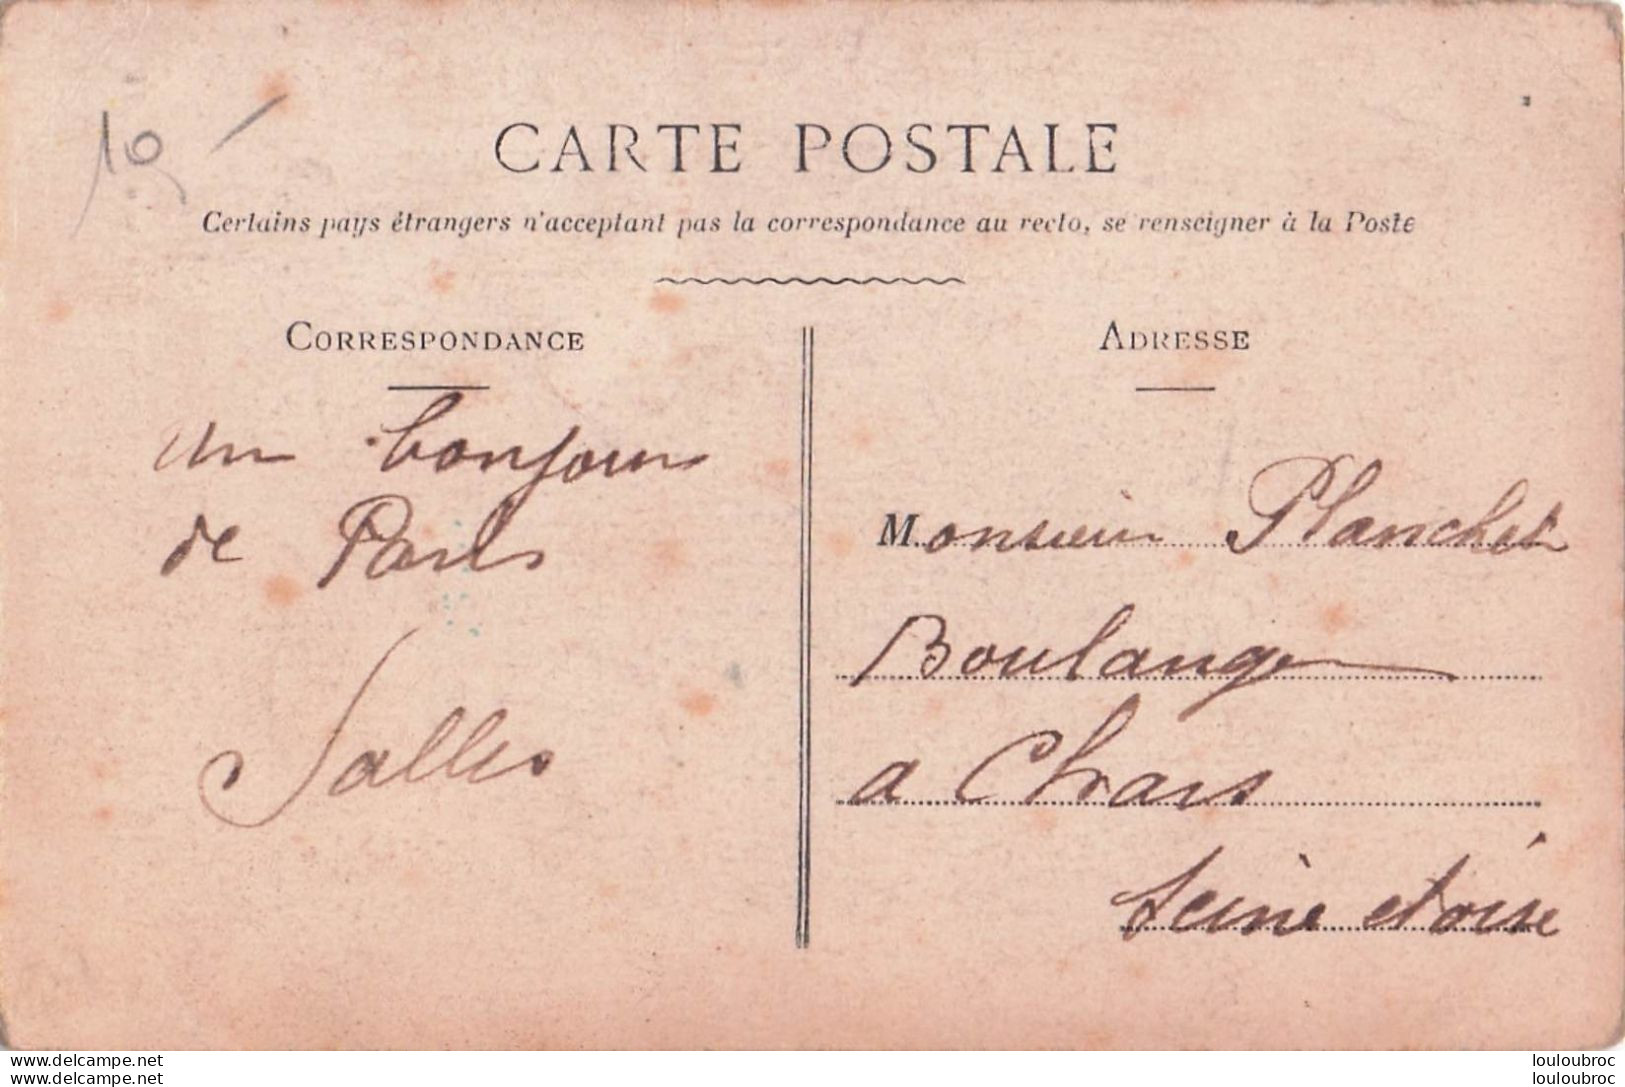 10 -
CARTE POSTALE
Certains pays étrangers n'acceptant pas la correspondance au recto, se renseigner à la Poste
CORRESPONDANCE
un bonjour
de Paris
Salles
ADRESSE
Monsieur Planchet
Boulanger
a Chars
Seine et oise
www.delcampe.net
www.delcampe.net
louloubroc
louloubroc